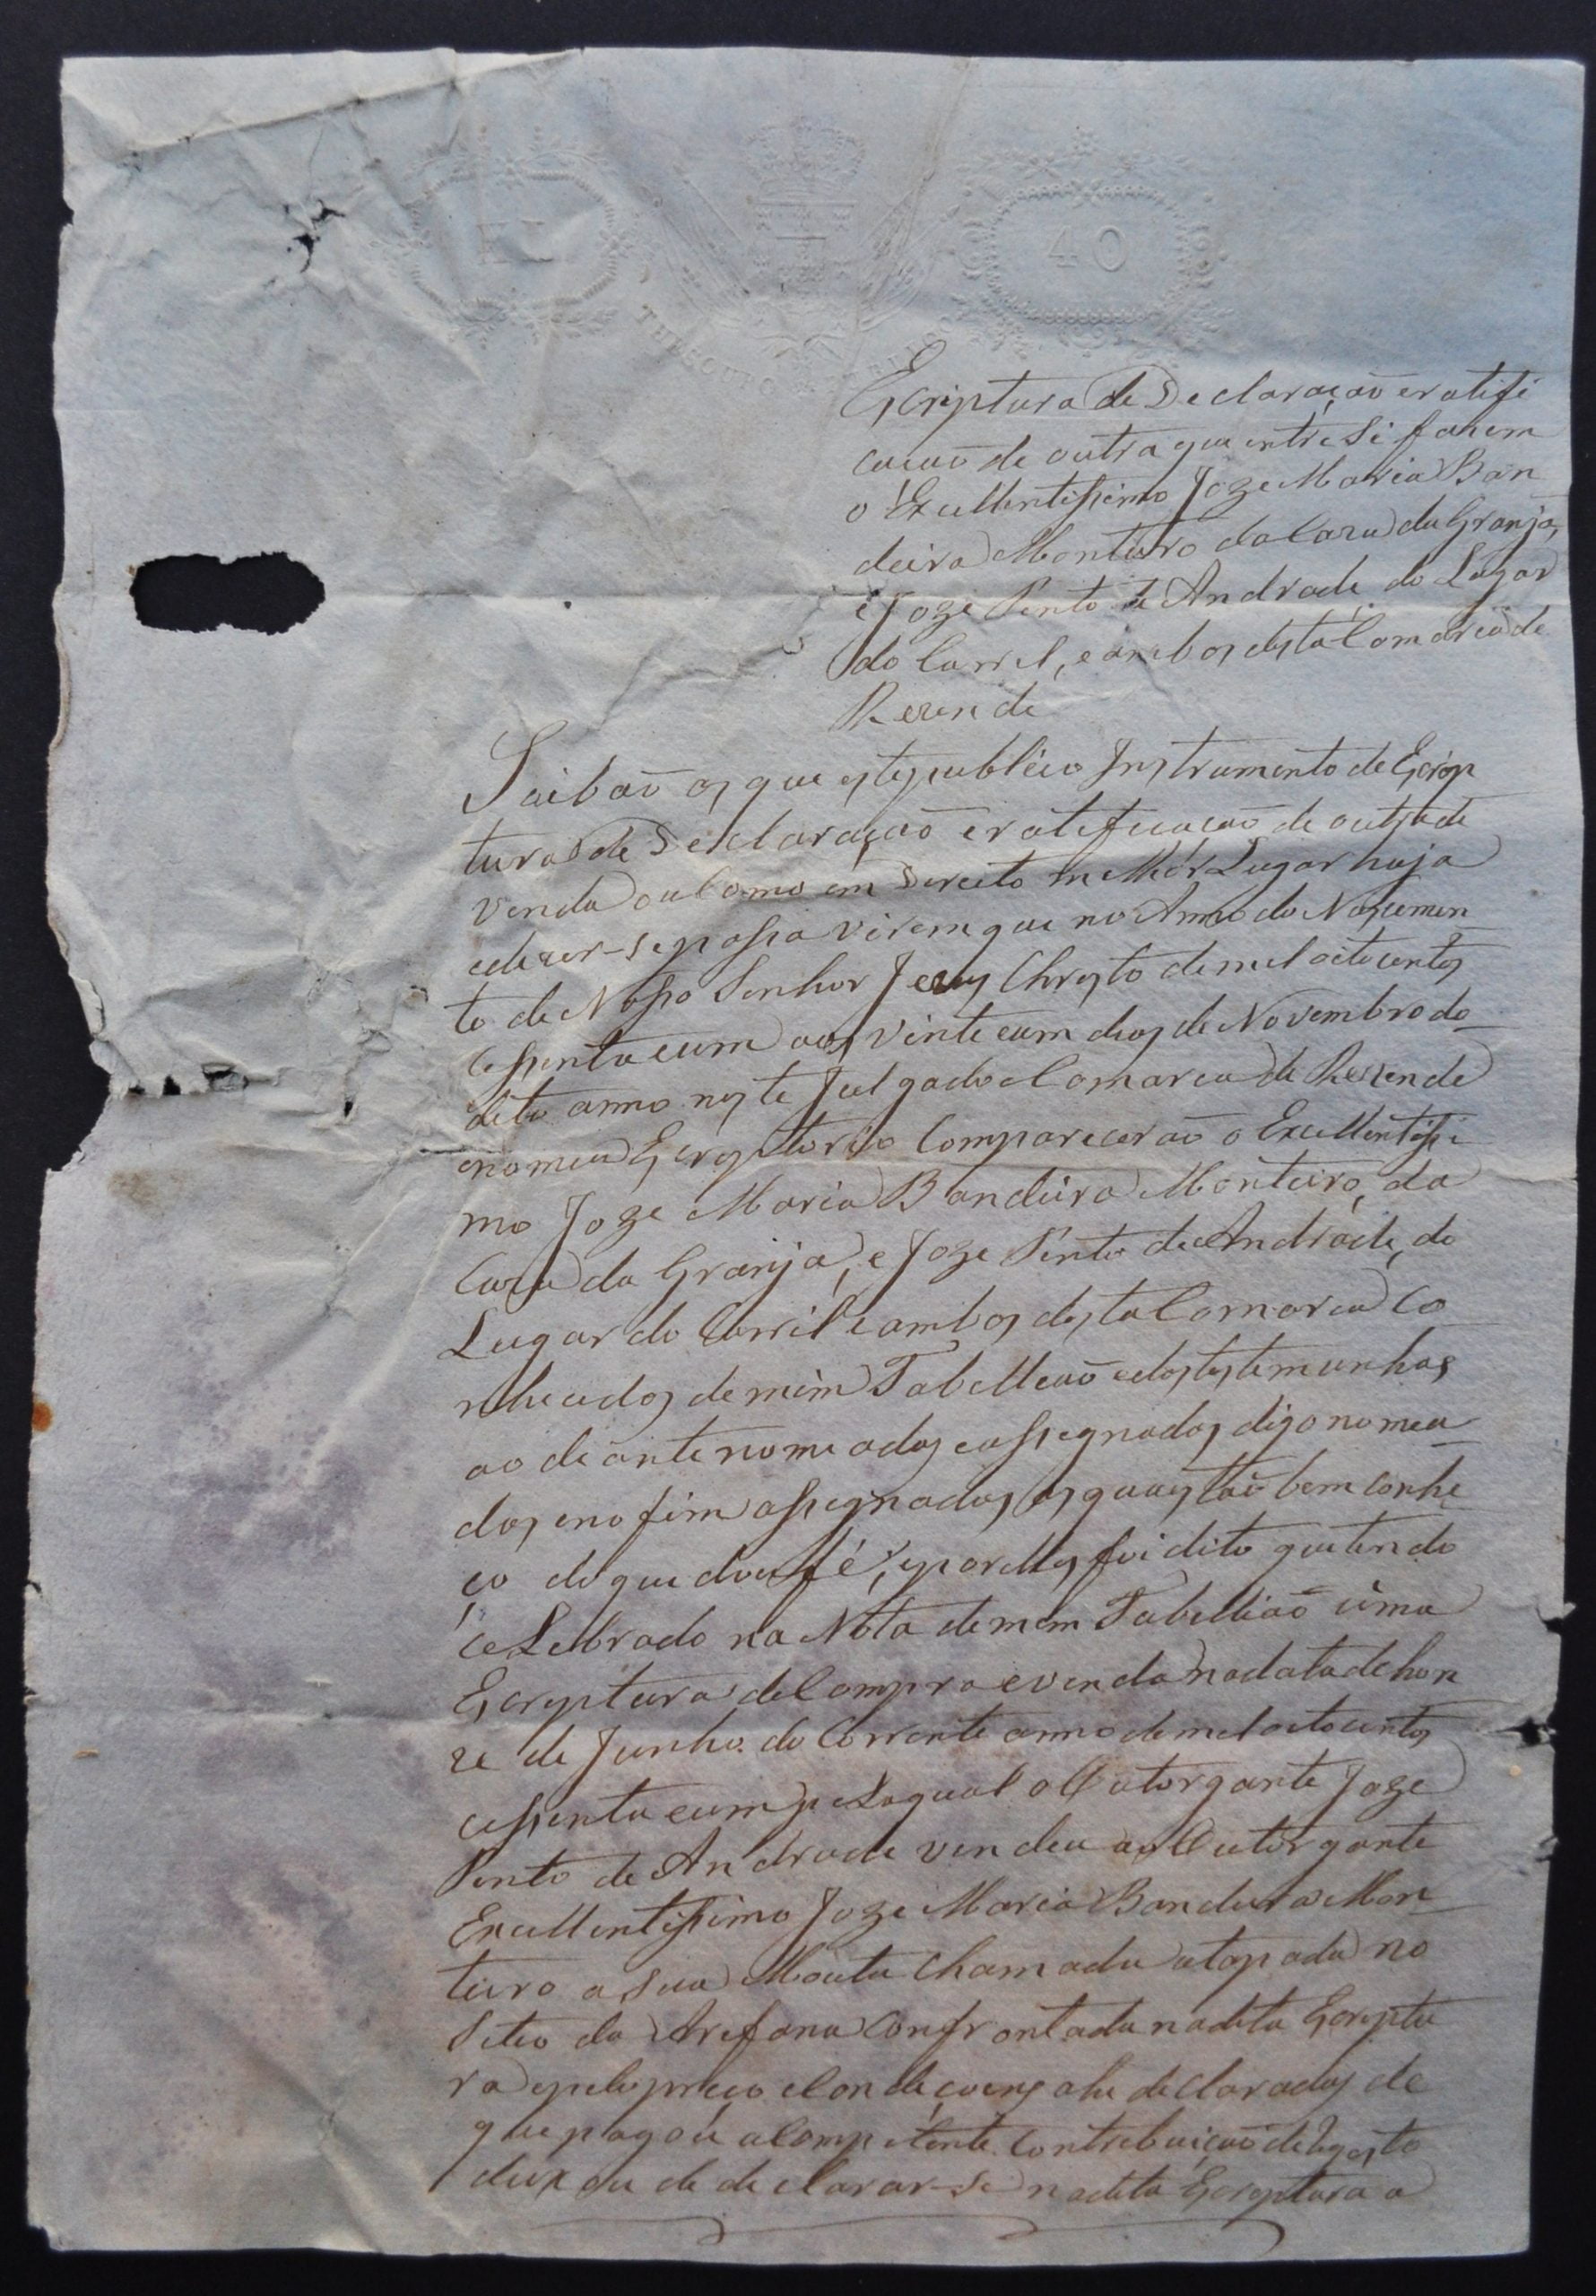 40
THESOURO
Escriptura de Declaração eratifi
cacaõ de outra que entre Si fazem
o Excellentissimo Joze Maria Ban
deira Monteiro da Caza da Granja,
e Joze Pinto de Andrade do Lugar
do Carril, e ambos desta Comarca de
Rezende
Saibaõ os que este publico Instrumento de Escrip
tura de Declaração eratificacaõ de outra de
venda ou Como em Direito melhor Lugar haja
edizer-se possa virem que no Anno do Nascimen
to de Nosso Senhor Jezus Christo de mil oitocentos
Cessenta eum aos vinte eum dias de Novembro do
dito anno neste Julgado e Comarca de Rezende
eno meu Escriptorio Comparecerao o Excellentissi
mo Joze Maria Bandeira Monteiro, da
Caza da Granja, e Joze Pinto de Andrade, do
Lugar do Carril e ambos desta Comarca Co
nhecidos de mim Tabelleaõ edas testemunhas
ao deante nomeadas eassignadas digo nomea
das eno fim assignadas as quaes taõ bem conhe
ço do que dou fé, e por elles foi dito que tendo
ceLebrado na Nota de mim Tabelliaõ uma
Escriptura de Compra evenda na data de hon
ze de Junho do Corrente anno de mil oitocentos
cessenta eum peLa qual o Outorgante Joze
Pinto de Andrade vendeu ao Outorgante
Excellentissimo Joze Maria Bandeira Mon
teiro a sua Mouta Chamada a tapada no
Sitio da Arefana Confrontada na dita Escriptu
ra epelo preço e Condiçoens ahi declaradas de
que pagou a Competente Contribuiçaõ de Registo
deixou de declarar-se na dita Escriptura a